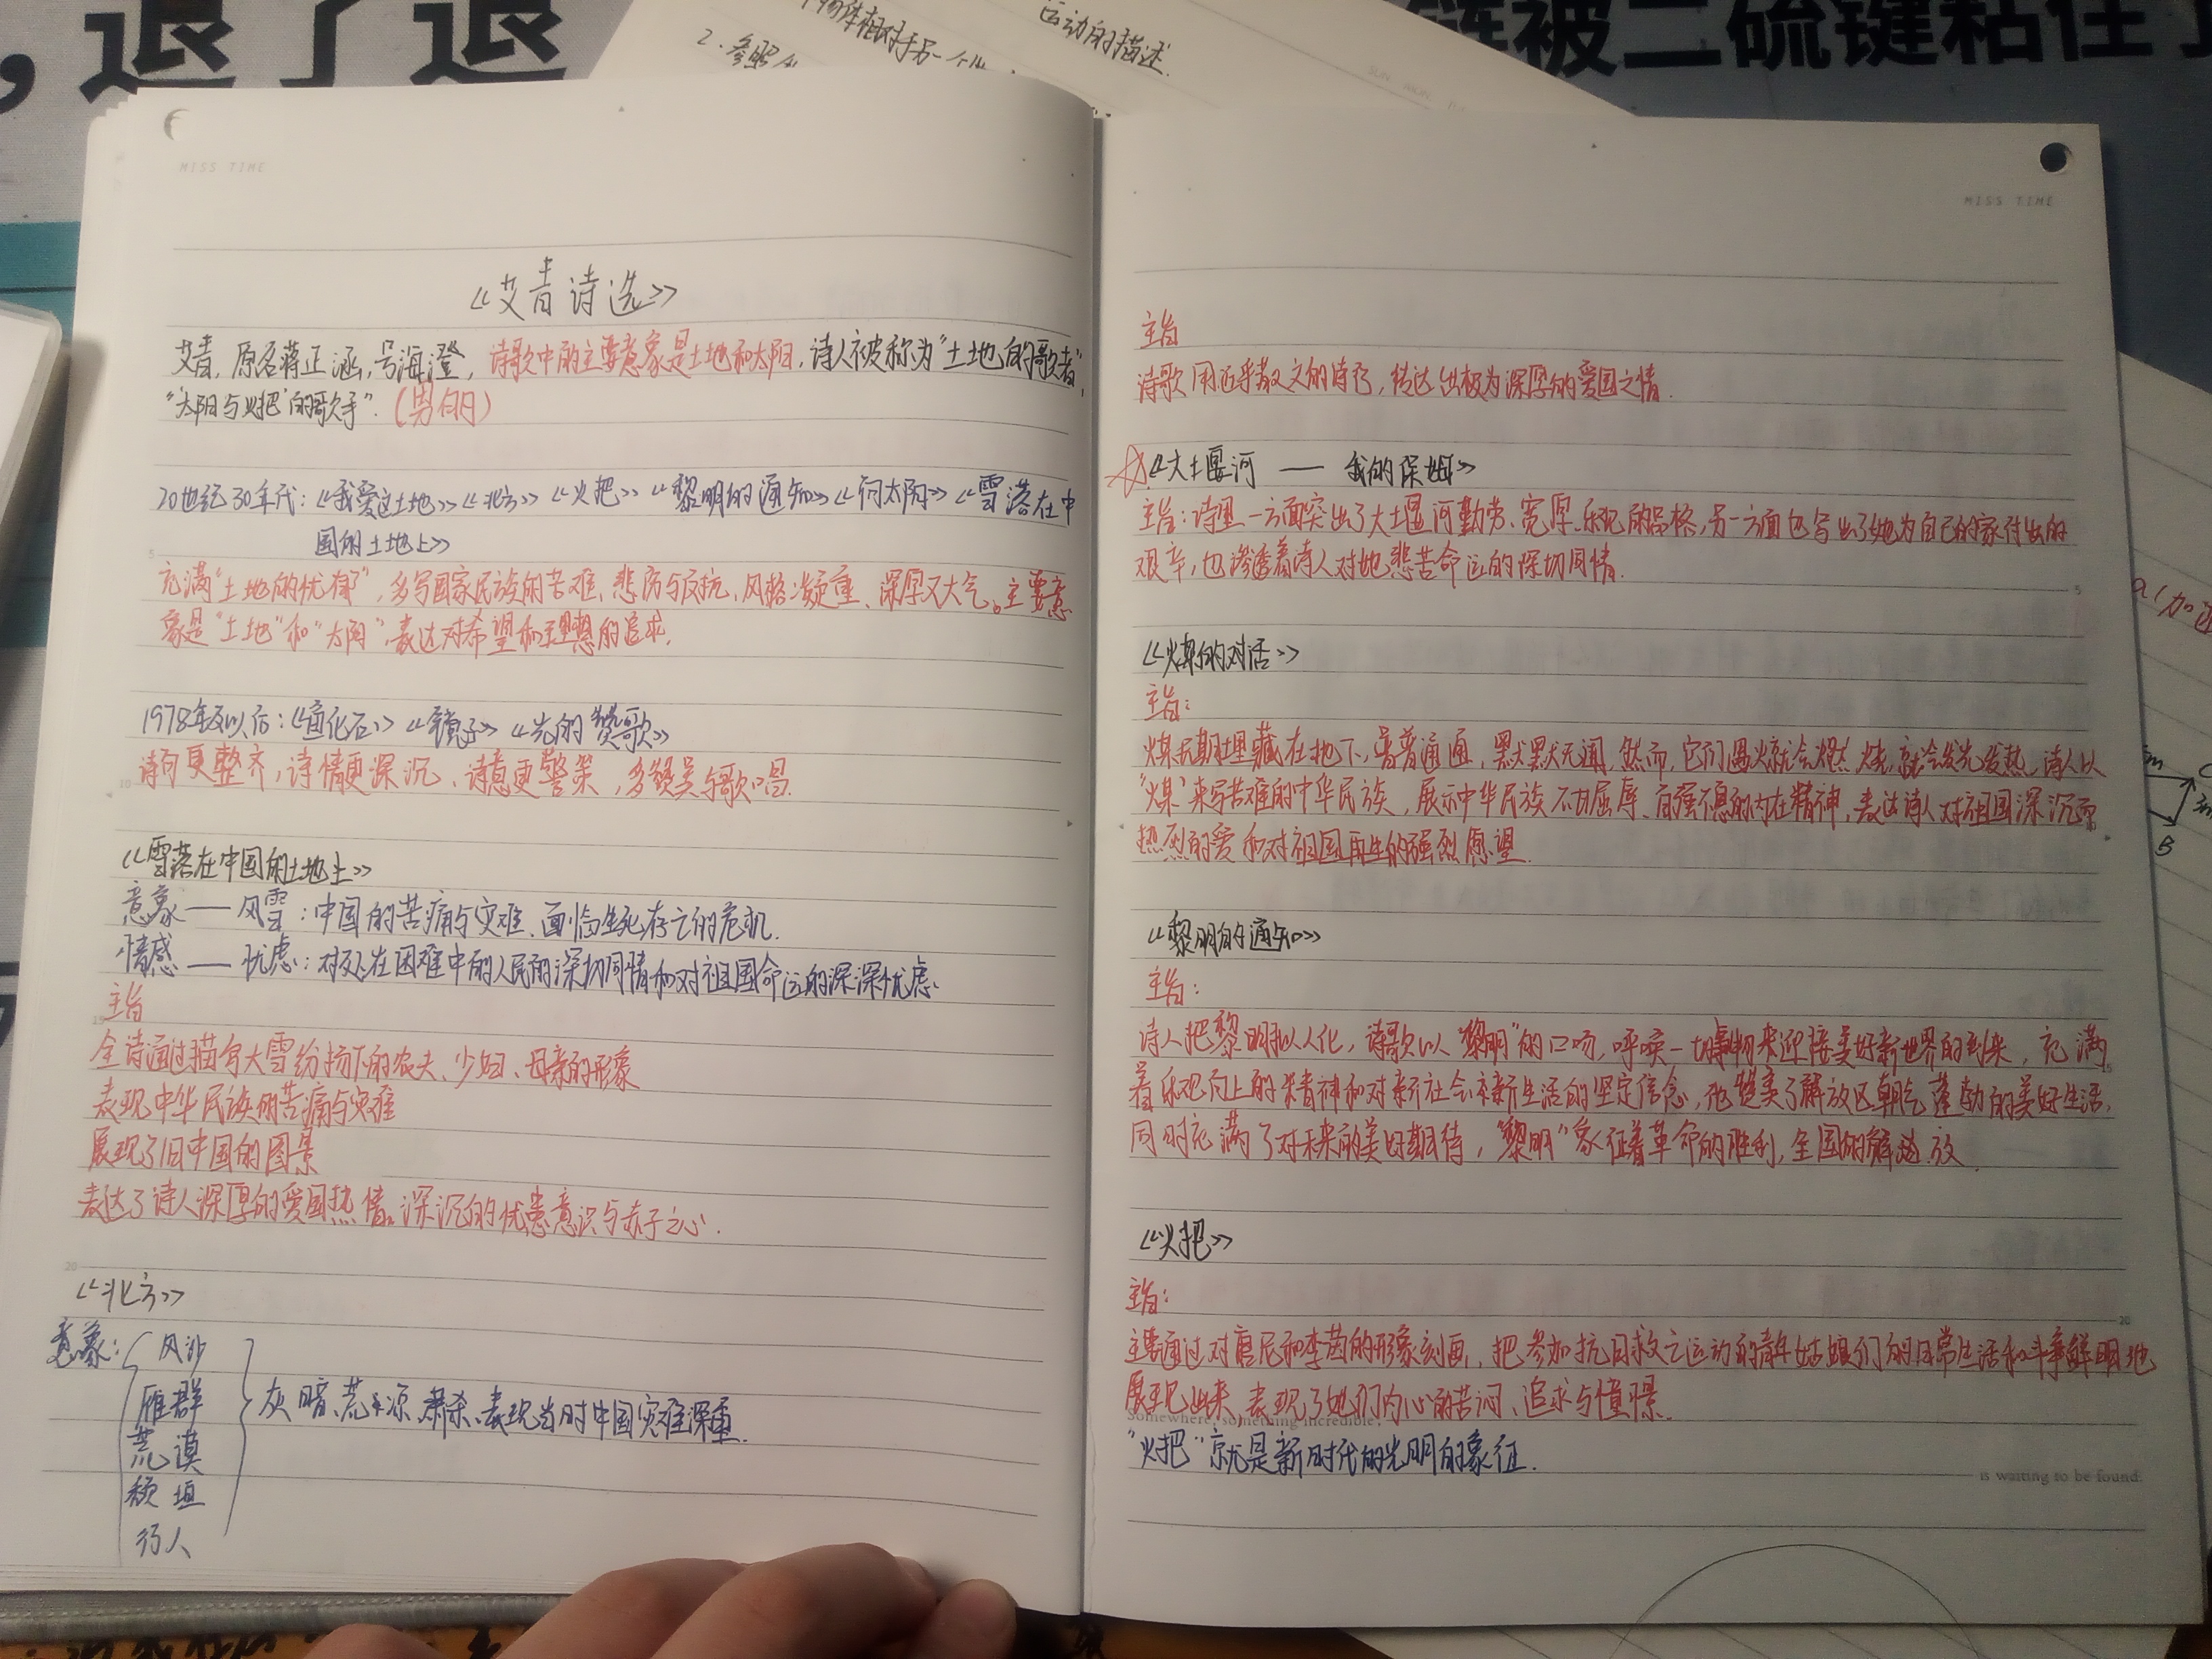 ，退了退
链被二硫键粘住了
运动的描述.
个物体相对于另一个
2. 参照
MISS TIME
《艾青诗选》
艾青，原名蒋正涵，号海澄，诗歌中的主要意象是土地和太阳，诗人被称为"土地的歌者"，
"太阳与火把"的歌手". (男的)
20世纪30年代：《我爱这土地》《北方》《火把》《黎明的通知》《向太阳》《雪落在中
国的土地上》
充满"土地的忧郁"，多写国家民族的苦难、悲伤与反抗，风格凝重、深厚又大气。主要意
象是"土地"和"太阳"，表达对希望和理想的追求.
1978年及以后：《鱼化石》《镜子》《光的赞歌》
诗句更整齐，诗情更深沉、诗意更警策，多赞美与歌唱.
《雪落在中国的土地上》
意象——风雪：中国的苦痛与灾难、面临生死存亡的危机.
情感——忧虑：对处在困难中的人民的深切同情和对祖国命运的深深忧虑.
主旨
全诗通过描写大雪纷扬下的农夫、少妇、母亲的形象
表现中华民族的苦痛与灾难
展现了旧中国的图景
表达了诗人深厚的爱国热情、深沉的忧患意识与赤子之心.
《北方》
意象：风沙
雁群
荒漠
颓垣
行人
灰暗、荒凉、肃杀、表现当时中国灾难深重.
MISS TIME
主旨
诗歌用近乎散文的诗句，传达出极为深厚的爱国之情.
☆《大堰河 — 我的保姆》
主旨：诗里一方面突出了大堰河勤劳、宽厚、乐观的品格，另一方面也写出了她为自己的家付出的
艰辛，也渗透着诗人对她悲苦命运的深切同情.
《煤的对话》
主旨：
煤长期埋藏在地下，普普通通，默默无闻，然而，它们遇火就会燃烧，就会发光发热，诗人以
"煤"来写苦难的中华民族，展示中华民族不甘屈辱、自强不息的内在精神，表达诗人对祖国深沉而
热烈的爱和对祖国再生的强烈愿望.
《黎明的通知》
主旨：
诗人把黎明拟人化，诗歌以"黎明"的口吻，呼唤一切事物来迎接美好新世界的到来，充满
着乐观向上的精神和对新社会、新生活的坚定信念，他赞美了解放区朝气蓬勃的美好生活，
同时充满了对未来的美好期待，"黎明"象征着革命的胜利，全国的解放.
《火把》
主旨：
主要通过对唐尼和李茵的形象刻画，把参加抗日救亡运动的青年姑娘们的日常生活和斗争鲜明地
展现出来，表现了她们内心的苦闷、追求与憧憬.
Somewhere, something incredible,
"火把"就是新时代的光明的象征.
is waiting to be found.
5
10
15
20
5
15
20
B